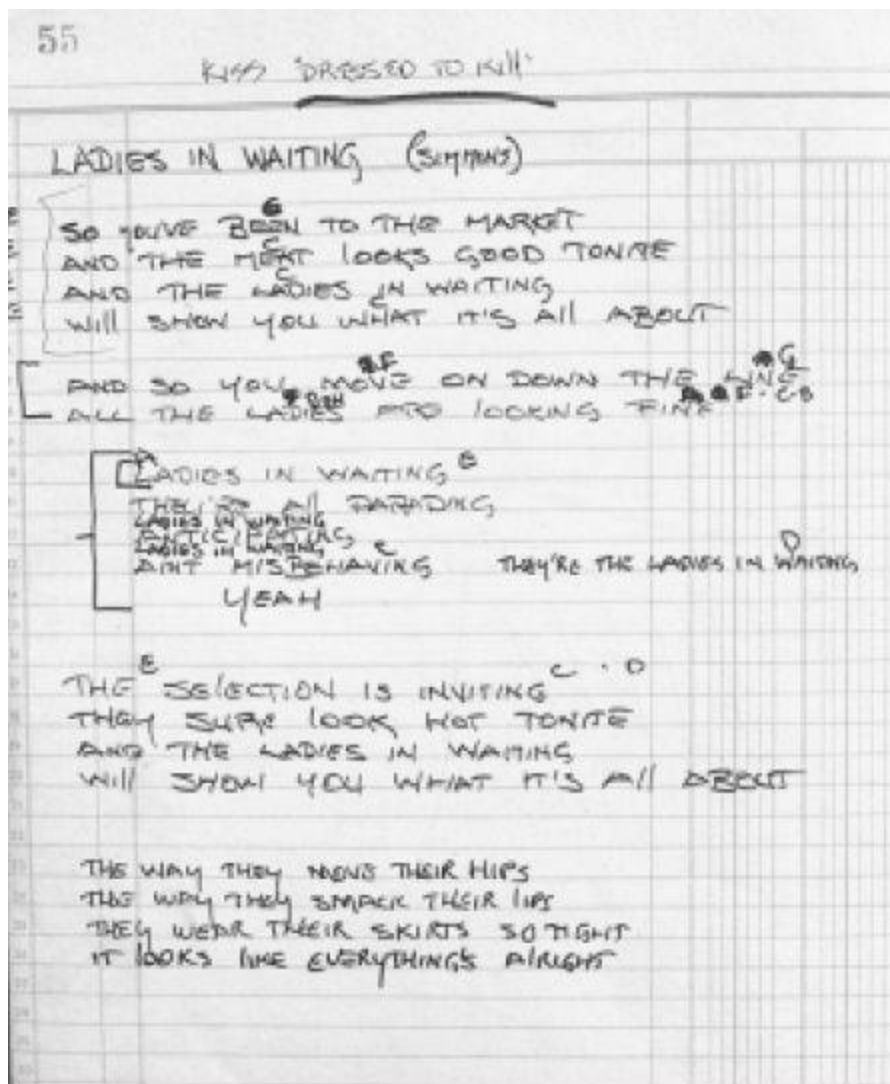 55
KISS 'DRESSED TO KILL'
LADIES IN WAITING (SIMMONS)
SO YOU'VE BEEN TO THE MARKET
AND THE MEAT LOOKS GOOD TONITE
AND THE LADIES IN WAITING
WILL SHOW YOU WHAT IT'S ALL ABOUT
F G
AND SO YOU MOVE ON DOWN THE LINE
ALL THE LADIES LOOKING FINE
LADIES IN WAITING
ALL PARADING
LADIES IN WAITING
ANTICIPATING
LADIES IN WAITING
AINT MISBEHAVING THEY'RE THE LADIES IN WAITING
YEAH
E C · D
THE SELECTION IS INVITING
THEY SURE LOOK HOT TONITE
AND THE LADIES IN WAITING
WILL SHOW YOU WHAT IT'S ALL ABOUT
THE WAY THEY MOVE THEIR HIPS
THE WAY THEY SMACK THEIR LIPS
THEY WEAR THEIR SKIRTS SO TIGHT
IT LOOKS LIKE EVERYTHING'S ALRIGHT